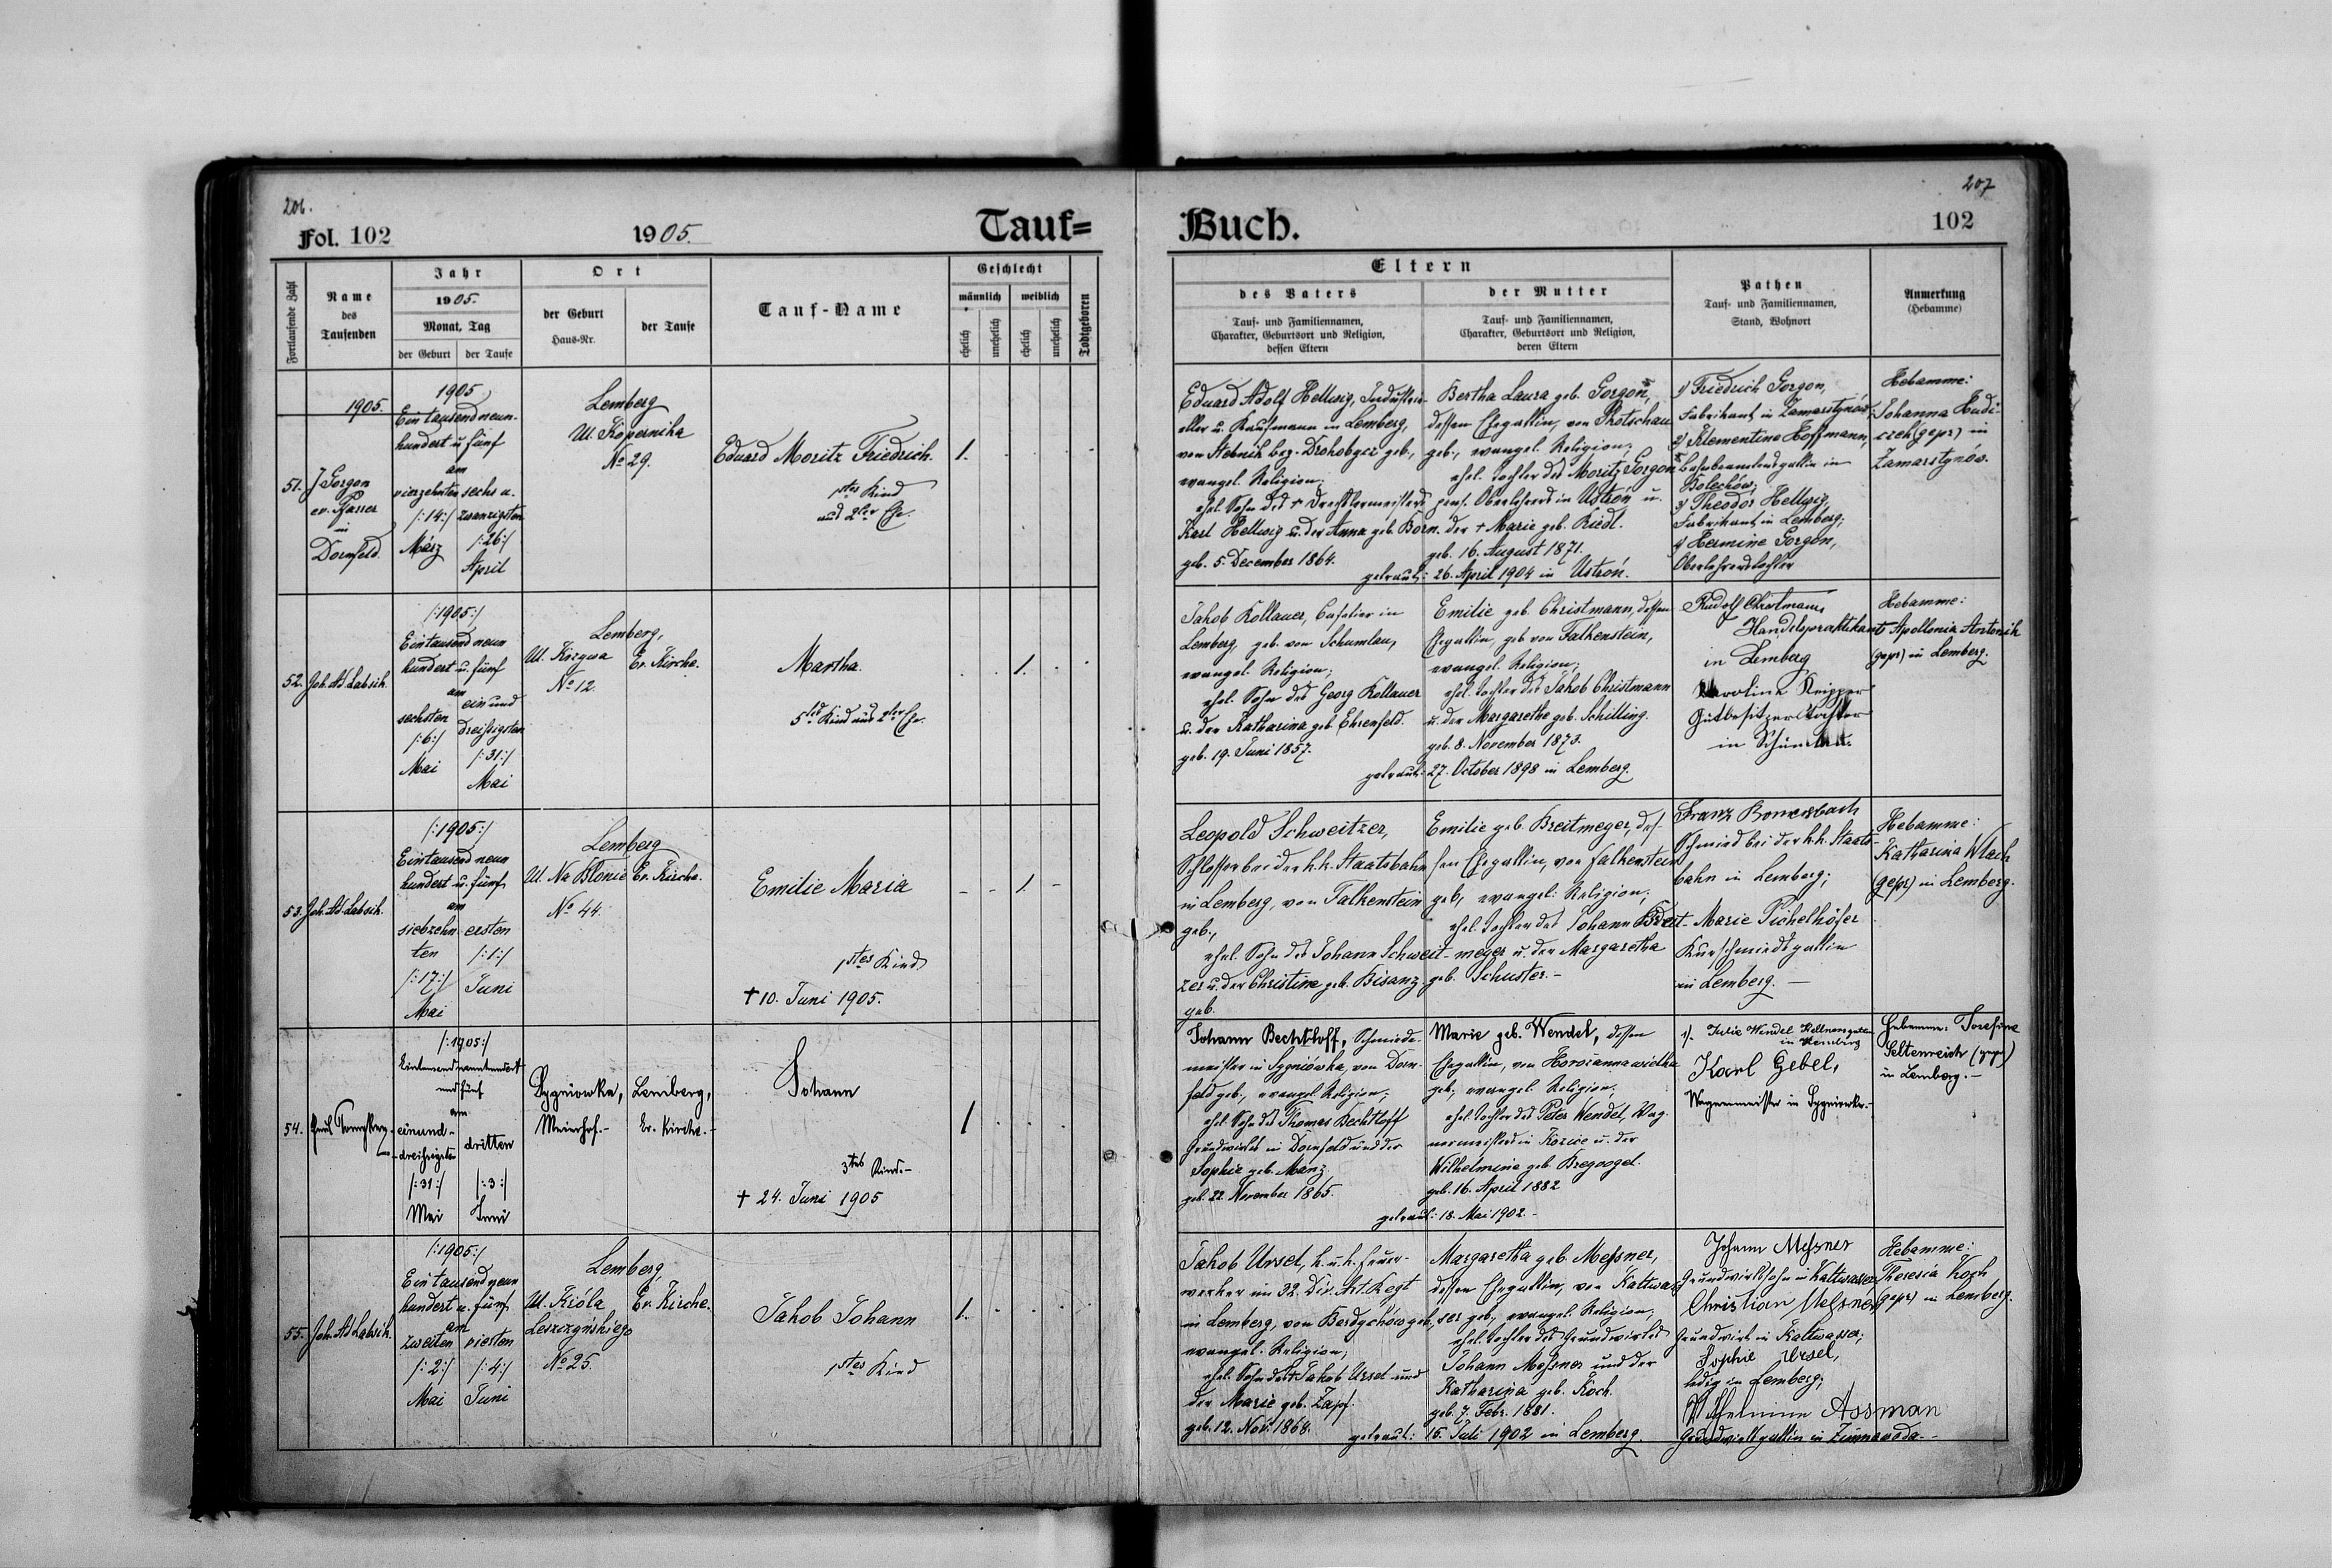 206.
Fol. 102
1905.
Tauf=
Fortlaufende Zahl
Name
des
Taufenden
Jahr
1905.
Monat, Tag
der Geburt
der Taufe
Ort
der Geburt
Haus-Nr.
der Taufe
Tauf-Name
Geschlecht
männlich
weiblich
ehelich
unehelich
ehelich
unehelich
Todtgeboren
1905.
51.
J Gorgon
ev. Pfarrer
in
Dornfeld
1905
Ein tausend neun-
hundert u fünf
am
vierzehnten
/:14:/
März
sechs u.
zwanzigsten
/:26:/
April
Lemberg
Ul. Kopernika
No 29.
Eduard Moritz Friedrich.
1tes Kind
aus 2ter Ehe.
1.
52.
Joh. Ad. Labsik.
/:1905:/
Ein tausend neun
hundert u. fünf
am
sechsten
/:6:/
Mai
ein und
dreißigsten
/:31:/
Mai
Lemberg,
Ul. Krzywa
No 12.
Ev. Kirche.
Martha.
5tes Kind aus 2ter Ehe.
1.
53.
Joh. Ad. Labsik.
/:1905:/
Ein tausend neun
hundert u. fünf
am
siebzehn-
ten
/:17:/
Mai
ersten
/:1:/
Juni
Lemberg
Ul. Na Błonie
No 44.
Ev. Kirche.
Emilie Maria
1tes Kind
† 10. Juni 1905.
1.
54.
/:1905:/
Eintausendneunhundert
und fünf
am
einund-
dreißigsten
/:31:/
Mai
dritten
/:3:/
Juni
Sygniówka,
Meierhof.-
Lemberg,
Ev. Kirche.-
Johann
3tes Kind.-
† 24. Juni 1905
1
55.
Joh. Ad. Labsik.
/:1905:/
Ein tausend neun
hundert u. fünf
am
zweiten
/:2:/
Mai
vierten
/:4:/
Juni
Lemberg
Ul. Króla
Leszczyńskiego
No 25.
Ev. Kirche.
Jakob Johann
1tes Kind
1.
207
Buch.
102
Eltern
des Vaters
Tauf- und Familiennamen,
Charakter, Geburtsort und Religion,
dessen Eltern
der Mutter
Tauf- und Familiennamen,
Charakter, Geburtsort und Religion,
deren Eltern
Pathen
Tauf- und Familiennamen,
Stand, Wohnort
Anmerkung
(Hebamme)
Eduard Adolf Hellwig, Industri-
eller u. Kaufmann in Lemberg,
von Stebnik bez. Drohobycz geb.,
evangel. Religion;
ehel. Sohn des † Drechslermeisters
Karl Hellwig u. der Anna geb. Born.
geb. 5. December 1864.
Bertha Laura geb. Gorgon,
dessen Ehegattin, von Skotschau
geb., evangel. Religion;
ehel. Tochter des Moritz Gorgon
pens. Oberlehrers in Ustroń u.
der † Marie geb. Riedl.
geb. 16. August 1871.
getraut: 26. April 1904 in Ustroń.
1) Friedrich Gorgon,
Fabrikant in Zamarstynów;
2) Klementine Hoffmann,
Bahnbeamtensgattin in
Bolechów;
3) Theodor Hellwig,
Fabrikant in Lemberg;
4) Hermine Gorgon,
Oberlehrerstochter
Hebamme:
Johanna Hudi-
czek (gepr.) in
Zamarstynów.
Jakob Kollauer, Cafetier in
Lemberg, geb. von Schumlau,
evangel. Religion;
ehel. Sohn des Georg Kollauer
u. der Katharina geb. Ehrenfeld.
geb. 19. Juni 1857.
Emilie geb. Christmann, dessen
Ehegattin, geb. von Falkenstein,
evangel. Religion;
ehel. Tochter des Jakob Christmann
u. der Margarethe geb. Schilling.
geb. 8. November 1873.
getraut: 27. October 1898 in Lemberg.
Rudolf Christmann
Handelspraktikant
in Lemberg
Karoline Kripper
Gutsbesitzerstochter
in
Hebamme:
Apollonia Antonik
(gepr.) in Lemberg.
Leopold Schweitzer,
Schlosser bei der k.k. Staatsbahn
in Lemberg, von Falkenstein
geb.,
ehel. Sohn des Johann Schweit-
zer u. der Christine geb. Bisanz.
geb.
Emilie geb. Breitmeyer, des-
sen Ehegattin, von Falkenstein
geb., evangel. Religion;
ehel. Tochter des Johann Breit-
meyer u. der Margaretha
geb. Schuster.-
Franz Bomersbach
Schmied bei der k.k. Staats-
bahn in Lemberg;
Marie Pichelhöfer
Kurschmiedsgattin
in Lemberg.-
Hebamme:
Katharina Wlach
(gepr.) in Lemberg.
Johann Bechtloff, Schmiede-
meister in Sygniówka, von Dorn-
feld geb., evangel. Religion;
ehel. Sohn des Thomas Bechtloff
Grundwirtes in Dornfeld und der
Sophie geb. Manz.
geb. 22. November 1865.
Marie geb. Wendel, dessen
Ehegattin, von
geb., evangel. Religion;
ehel. Tochter des Peter Wendel, Wag-
nermeisters in Kozice u. der
Wilhelmine geb. Bregvogel.
geb. 16. April 1882
getraut: 18. Mai 1902.-
1). Julie Wendel Kellnersgattin
in Lemberg
Karl Gebel,
Wagenmeister in Sygniówka.-
Hebamme: Josefine
Seltenreich (gepr.)
in Lemberg.-
Jakob Ursel, k. u. k. Feuer-
werker im 32. Div. Art. Regt
in Lemberg, von Bardychów geb.,
evangel. Religion;
ehel. Sohn des † Jakob Ursel und
der Marie geb. Zapf.
geb. 12. Nov. 1868.
Margaretha geb. Meßner,
dessen Ehegattin, von Kaltwas-
ser geb., evangel. Religion;
ehel. Tochter des Grundwirtes
Johann Meßner und der
Katharina geb. Koch.
geb. 7. Febr. 1881.
getraut: 15. Juli 1902 in Lemberg.
Johann Meßner
Grundwirtssohn in Kaltwasser
Christian Meßner
Grundwirt in Kaltwasser;
Sophie Ursel,
ledig in Lemberg;
Wilhelmine Assman
Grundwirtsgattin in Zimnawoda.-
Hebamme:
Theresia Koch
(gepr.) in Lemberg.